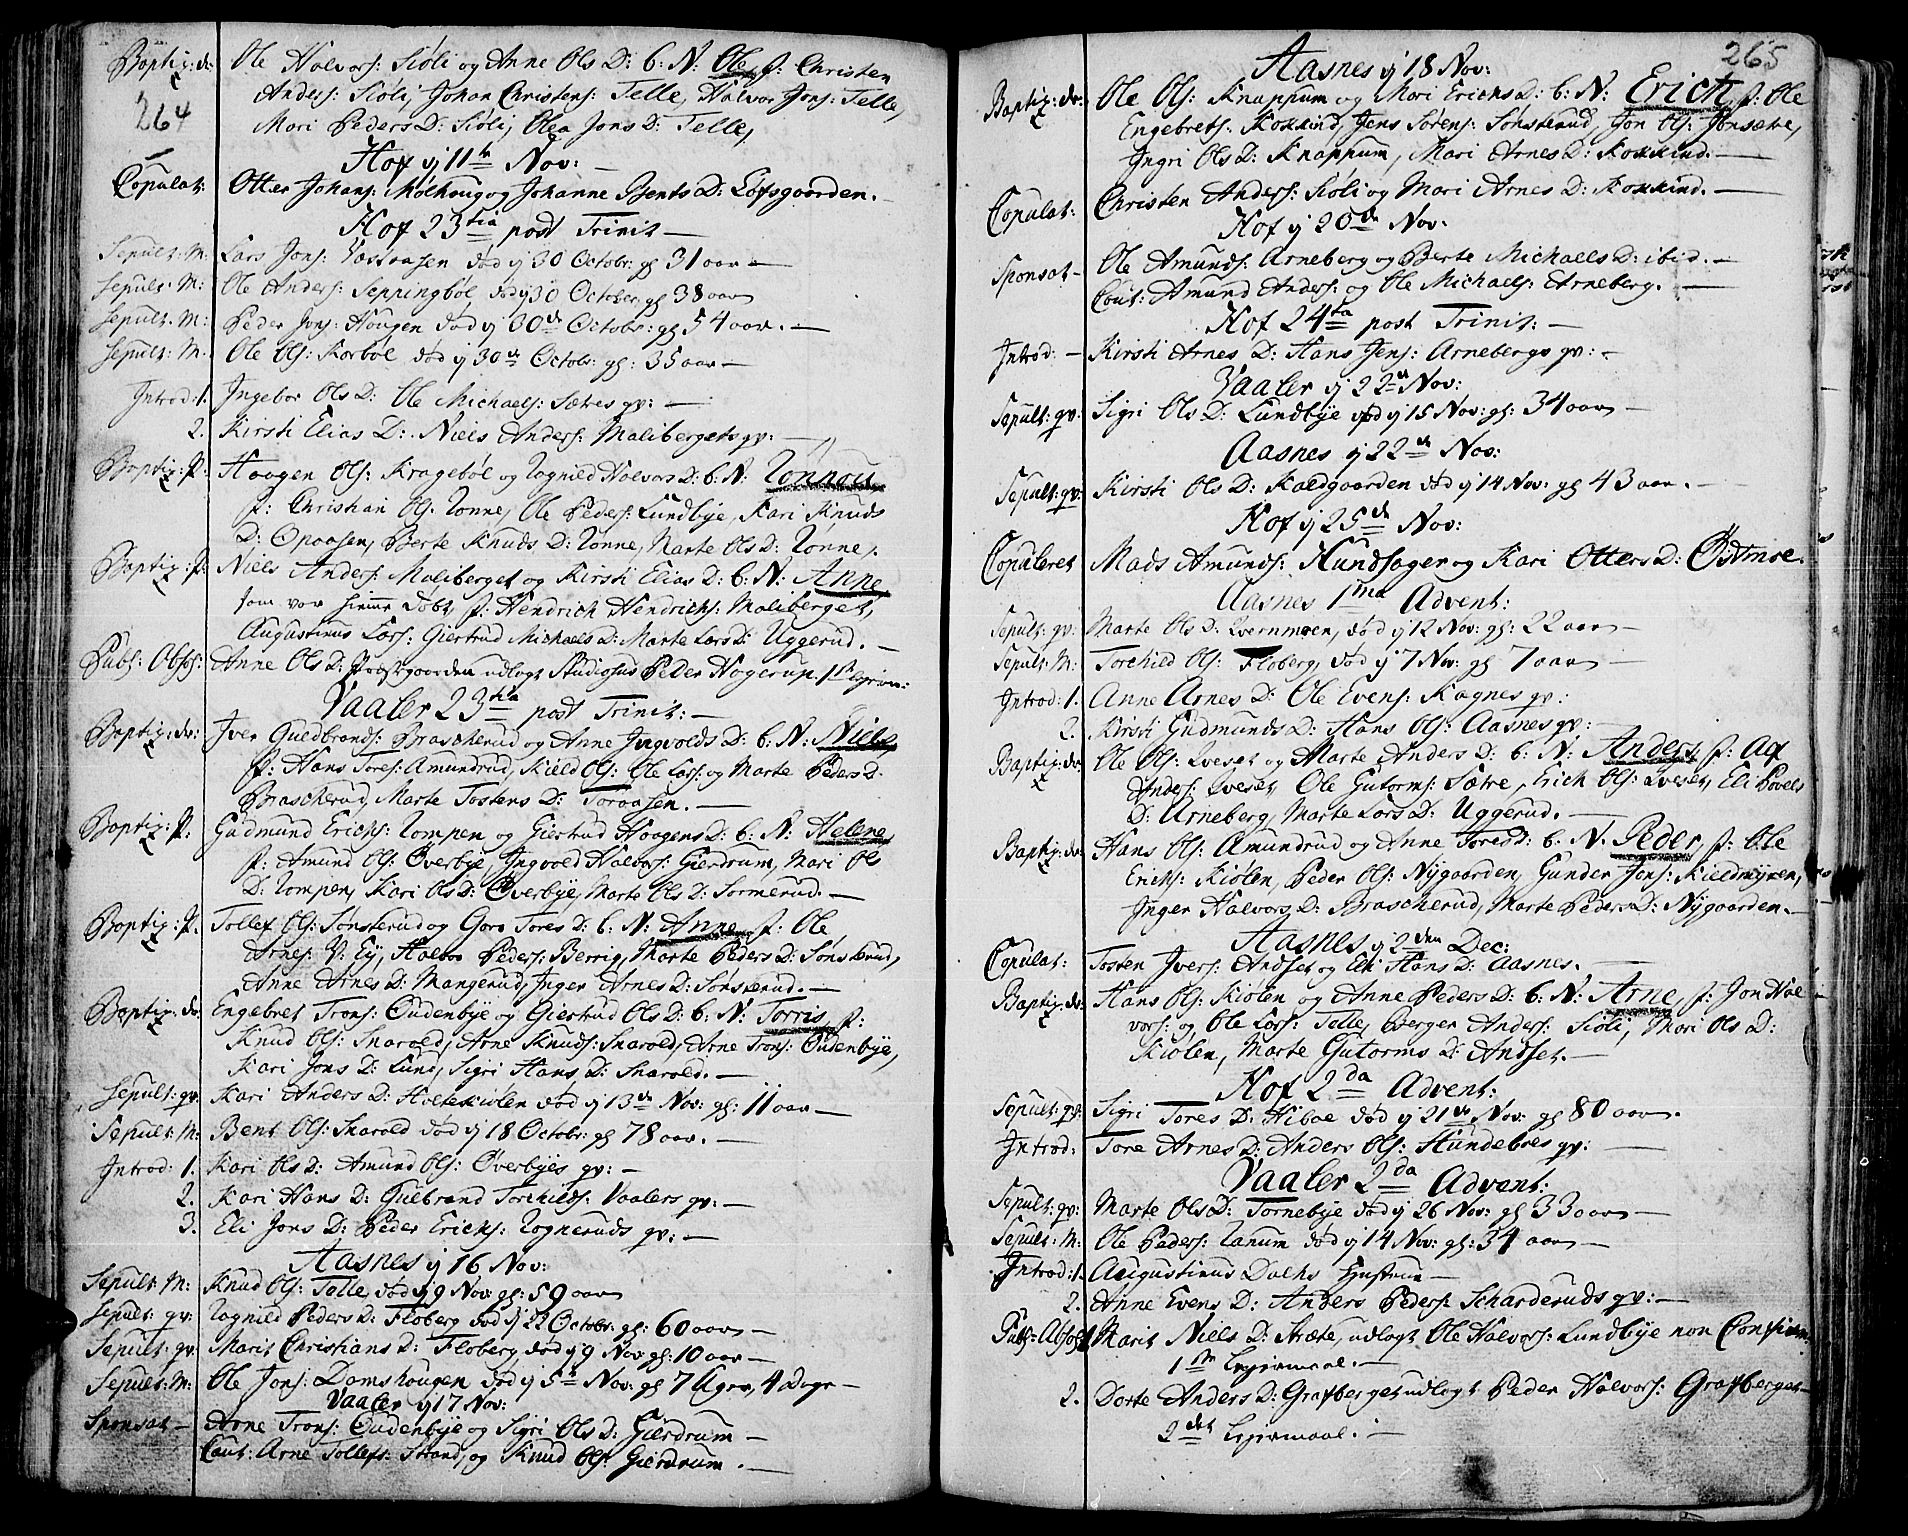 264
Baptiz: dv: Ole Halvors: Siøli og Anne Ols D: b: N: Ole, f: Christen
Anders: Siøli, Johan Christens: Telle, Halvor Jons: Telle,
Mari Peders D: Siøli, Olea Jons D: Telle,
Hof ij 11te Nov:
Copulat: Otter Johans: Molhoug og Johanne Bents D: Lofsgaarden.
Hof 23tia post Trinit
Sepult: M: Lars Jons: Vastaasen død ij 30 Octobr: gl 31 aar
Sepult: M: Ole Anders: Seppingbøl død ij 30 October gl 38 aar
Sepult: M: Peder Jons: Hougen død ij 30de Octobr: gl 54 aar.
Sepult: M: Ole Ols: Korbøl død ij 30de Octobr: gl: 35 aar
Introd: 1. Ingebor Ols D: Ole Michaels: Sætres qv:
2. Kirsti Elias D: Niels Anders: Malibergets qv:
Baptiz: P: Haagen Ols: Kragebøl og Rognild Halvors D: b: N: Rønnou
f: Christian Ols: Rønne, Ole Peders: Lundbye, Kari Knuds
D: Opaasen, Berte Knuds D: Rønne, Marte Ols D: Rønne.
Baptiz: P: Niels Anders: Maliberget og Kirsti Elias D: b: N: Anne,
som var hiemme døbt, f: Hendrich Hendrichs: Maliberget,
Augustinus Lars: Giertrud Michaels D: Marte Lars D: Uggerud.
Publ: Absol: Anne Ols D: Præstgaarden udlagt Studiosus Peder Hagerup. 1ste
Vaaler 23tia post Trinit:
Baptiz: dv: Iver Guldbrands: Brascherud og Anne Ingvolds D: b: N: Niels
f: Hans Tores: Amundrud, Kield Ols: Ole Lars: og Marte Peders D:
Brascherud, Marte Tostens D: Toraasen.
Baptiz: P: Gudmund Erichs: Rompen og Giertrud Haagens D: b: N: Helene,
f: Amund Ols: Overbye, Ingvold Halvors: Gierdrum, Mari Ols
D: Rompen, Kari Ols D: Overbye, Marte Ols D: Sormerud.
Baptiz: P. Tollef Ols: Sønsterud og Goro Tores D: b: N: Anne, f: Ole
Arnes: V: Ey, Halvor Peders: Berrig, Marte Peders D: Sønsterud,
Anne Arnes D: Mangerud, Inger Arnes D: Sønsterud.
Baptiz: dv: Engebret Trons: Oudenbye og Giertrud Ols D: b: N: Torris, f:
Knud Ols: Snarold, Arne Knuds: Snarold, Arne Trons: Oudenbye,
Kari Jons D: Lund, Sigri Hans D: Snarold.
Sepult: qv: Kari Anders D: død ij 13de Nov: gl: 11 aar
Sepult: M: Bent Ols: Snarold død ij 18 Octobr: gl 78 aar.
Introd: 1. Kari Ols D: Amund Ols: Overbyes qv:
2. Kari Hans D: Gulbrand Torchilds: Vaalers qv:
3. Eli Jons D: Peder Erichs: Rogneruds qv:
Aasnes ij 16 Nov:
Sepult: M: Knud Ols: Telle, død ij 9 Nov: gl: 59 aar
Sepult: qv: Rognild Peders D: Floberg død ij 22 Octobr: gl: 60 aar
Sepult: qv: Marit Christians D: Floberg død ij 9 Nov: gl: 10 aar
Sepult: M: Ole Jons: Damshougen død ij 5te Nov: gl 7 Uger, 4 dage
Vaaler ij 17 Nov:
Sponsat Arne Trons: Oudenbye og Sigri Ols D: Gierdrum
Caut: Arne Tollefs: Strand, og Knud Ols: Gierdrum.
265
Aasnes ij 18 Nov:
Baptiz: dv: Ole Ols: Knappum og Mari Erichs D: b: N: Erich, f: Ole
Engebrets: Kokkind, Jens Sørens: Sønsterud, Jon Ols: Jonsætre,
Ingri Ols D: Knappum, Mari Arnes D: Kokkind.
Copulat: Christen Anders: Siøli og Mari Arnes D: Kokkind.
Hof ij 20de Nov:
Sponsat Ole Amunds: Arneberg og Berte Michaels D: ibid.
Caut: Amund Anders: og Ole Michaels: Arneberg.
Hof 24ta post Trinit:
Introd: Kirsti Arnes D: Hans Jens: Arnebergs qv:
Vaaler ij 22de Nov:
Sepult: qv: Sigri Ols D: Lundbye død ij 15 Nov: gl: 34 aar
Aasnes ij 22de Nov:
Sepult: qv: Kirsti Ols D: Kaldgaarden død ij 14 Nov: gl 43 aar.
Hof ij 25de Nov:
Copuleret Mads Amunds: Hundsager og Kari Otters D: Østmoe.
Aasnes 1ma Advent:
Sepult: qv: Marte Ols D: Qvernmoen, død ij 12 Nov: gl: 22 aar
Sepult: M: Torchild Ols: Floberg, død ij 7 Nov: gl 7 aar
Introd: 1. Anne Arnes D: Ole Evens: Kagnes qv:
2. Kirsti Gudmunds D: Hans Ols: Aasnes qv:
Baptiz: dv: Ole Ols: Qveset og Marte Anders D: b: N: Anders, f:
Anders: Qveset, Ole Gutorms: Sætre, Erich Ols: Qveset, Eli Povels
D: Arneberg, Marte Lars D: Uggerud.
Baptiz: dv: Hans Ols: Amundrud og Anne Tores D: b: N: Peder, f: Ole
Erichs: Kiølen, Peder Ols: Nygaarden, Gunder Jons: Kieldmyren,
Inger Halvors D: Brascherud, Marte Peders D: Nygaarden.
Aasnes ij 2den Dec:
Copulat: Tosten Ivers: Andset og Eli Hans D: Aasnes.
Baptiz: dv: Hans Ols: Kiølen og Anne Peders D: b: N: Arne, f: Jon Hal-
vors: og Ole Lars: Telle, Berger Anders: Siøli, Mari Ols D:
Kiølen, Marte Gutorms D: Andset.
Hof 2da Advent:
Sepult: qv: Sigri Tores D: Hiboe død ij 21de Nov: gl 80 aar.
Introd: Tore Arnes D: Anders Ols: Hundeboes qv:
Vaaler 2da Advent:
Sepult: qv: Marte Ols D: Tornebye død ij 26 Nov: gl 33 aar
Sepult: M: Ole Peders: Ranum død ij 14 Nov: gl: 34 aar
Introd: 1. Augustinus Dalhs Hustrue
2. Anne Evens D: Anders Peders: Scharderuds qv:
Publ: Absol: 1 Marit Niels D: Stræte, udlagt Ole Halvors: Lundbye non
1ste Leyermaal.
2. Dorte Anders D: Grafberget udlagt Peder Halvors: Grafberget
2det Leyermaal.